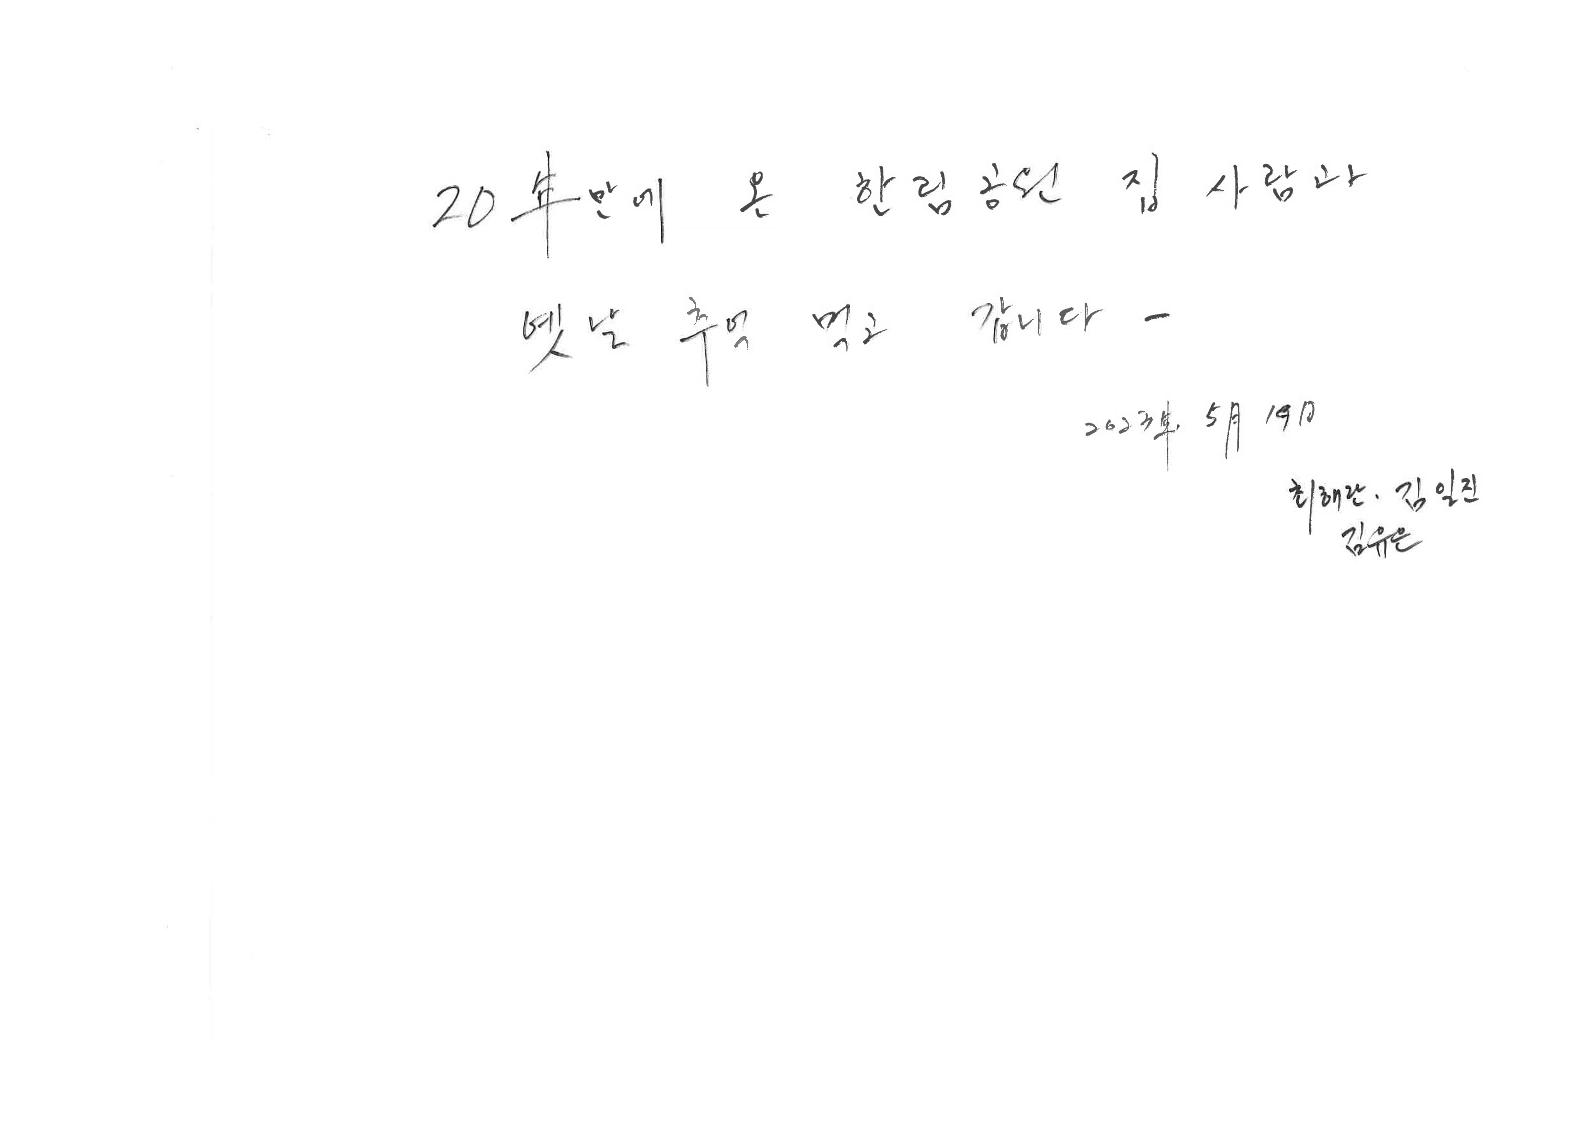 20年만에 온 한림공원 집 사람과
옛날 추억 먹고 갑니다 -
2023年. 5月 19日
최해란. 김일진
김유은